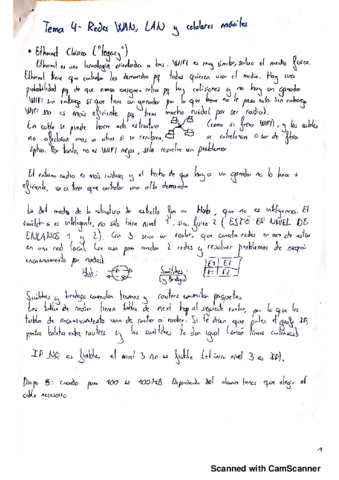 Tema 4 - Redes WAN, LAN y celulares móviles
• Ethernet Clásica ("legacy")
Ethernet es una tecnología orientada a bus. WIFI es muy similar, sobre el medio físico.
Ethernet tiene que controlar las demandas pq todos quieren usar el medio. Hay una
probabilidad pq de que emas colisiones y no hay un operador
WIFI sin embargo sí que tiene un operador por lo que no le pasa esto. Sin embargo
WIFI no es más eficiente pq tiene mucho ruido (al ser radio).
En cable se puede hacer esta estructura (como si fuera WIFI), y los cables
no afectarían unos a otros si se rozaran, se entrelazan o ser de fibra
óptica. Por tanto, no es WIFI mejor, solo resuelve un problema
El enlace radio es más ruidoso y el hecho de que haya un operador no lo hace +
eficiente, ya q tiene que controlar una alta demanda
Lo del medio de la estructura de estrella es un Hub, que no es inteligente. El
switch si es inteligente, no solo tiene nivel 1, sino físico 2 (ESTO ES NIVEL DE
ENLACES 1 y 2). Con 3 sería un router, que conecta redes
en una red local. Lo usa para conectar 2 redes y resolver problemas de
encaminamiento por nodos
Hub: Switches: E1 E2
y Bridge F1 E2
Switches y bridge conmutan tramas y routers conmutan paquetes
Las tablas de router tienen tablas de next hop al siguiente router, por lo que las
tablas de encaminamiento van de router a router. Si te dicen que pintes el IP,
pintas bolitas entre routers y los switches te dan igual (serían líneas continuas)
IP NO es fiable, el nivel 3 no es fiable (el único nivel 3 es IP).
Diapo 5: cuando pone 100 es 100MB. Dependiendo del alcance tienes que elegir el
cable necesario
1
Scanned with CamScanner